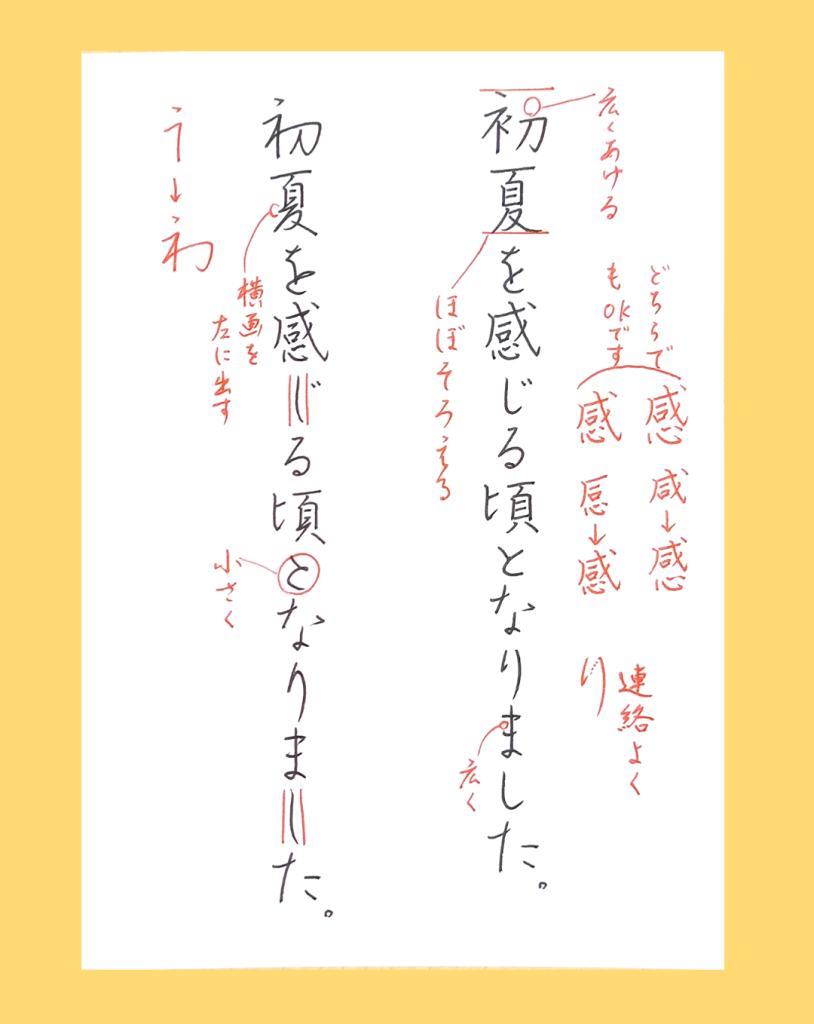 広くあける
どちらで
もOKです
感 感
咸→感
連絡よく
り
初夏を感じる頃となりました。
ほぼそろえる
広く
初夏を感じる頃となりました。
横画を
左に出す
小さく